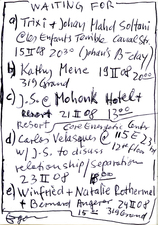 WAITING FOR
a) Trixi + Johan, Mahd Soltani
@ Les Enfants Terrible Canal Str.
15 II 08 20 30 (Johan's B-day)
b) Kathy Mene 19 II 08 20 00
319 Grand
c) J.S. @ Mohonk Hotel +
Resort 21 II 08 13 00
Resort Core Energetic Center
d) Carlos Velasquez @ 115 E 23,
w J.S. to discuss 12th Floor
relationship/separation
23 II 08
e) Winfried + Natalie Rothermel
+ Bernard 24 II 08
15 00 319 Grand